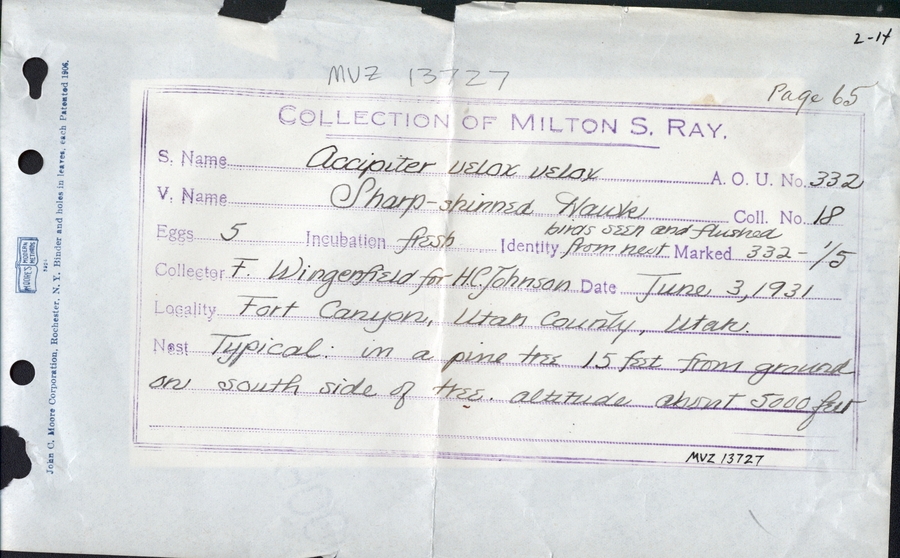 2-14
MVZ 13727
Page 65
COLLECTION OF MILTON S. RAY.
S. Name Accipiter velox velox A. O. U. No. 332
V. Name Sharp-shinned Hawk Coll. No. 18
birds seen and flushed
Eggs 5 Incubation fresh Identity from nest Marked 332-1/5
Collector F. Wingenfield for H.C. Johnson Date June, 3, 1931
Locality Fort Canyon, Utah County, Utah.
Nest Typical: in a pine tree 15 feet from ground
on south side of tree. altitude about 5000 feet
MVZ 13727
John C. Moore Corporation, Rochester, N. Y. Binder and holes in leaves, each Patented 1906.
MOORE'S MODERN METHODS